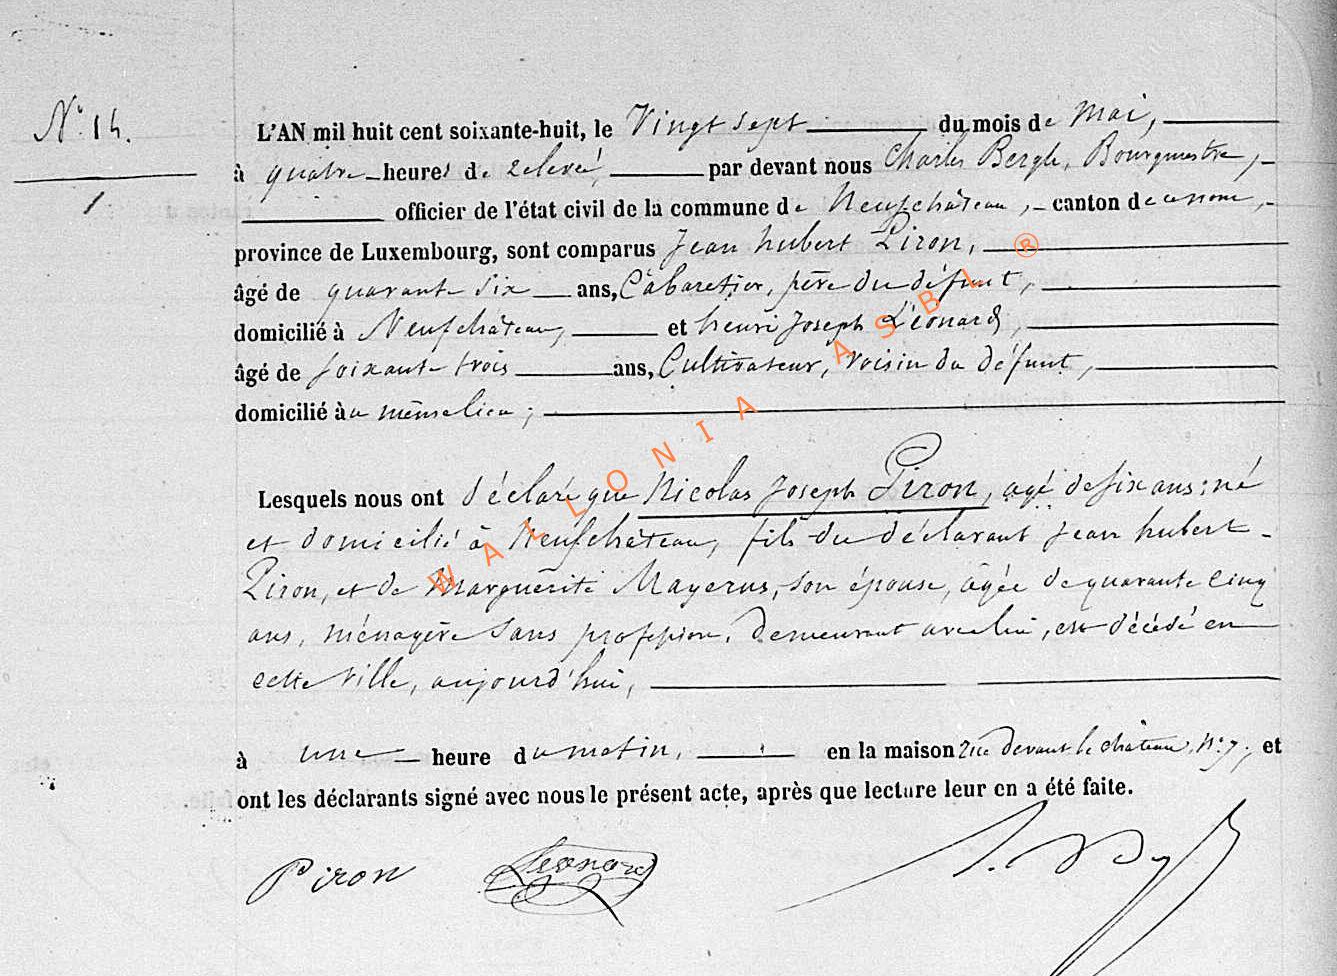 N° 14.
1.
L'AN mil huit cent soixante-huit, le Vingt sept du mois de Mai,
à quatre heures de relevé, par devant nous Charles Bergh, Bourgmestre,
officier de l'état civil de la commune de Neufchâteau, canton de ce nom,
province de Luxembourg, sont comparus Jean hubert Piron,
âgé de quarante six ans, Cabaretier, père du défunt,
domicilié à Neufchâteau, et henri Joseph Léonard,
âgé de soixante trois ans, Cultivateur, voisin du défunt,
domicilié au même lieu;
Lesquels nous ont déclaré que Nicolas Joseph Piron, agé de six ans; né
et domicilié à Neufchâteau, fils du déclarant Jean hubert
Piron, et de Marguérite Mayerus, son épouse, âgée de quarante cinq
ans, ménagère sans profession, demeurant avec lui, est décédé en
cette ville, aujourd'hui,
à une heure du matin, en la maison rue devant le château, N° 7, et
ont les déclarants signé avec nous le présent acte, après que lecture leur en a été faite.
Piron Léonard
WALLONIA ASBL ®